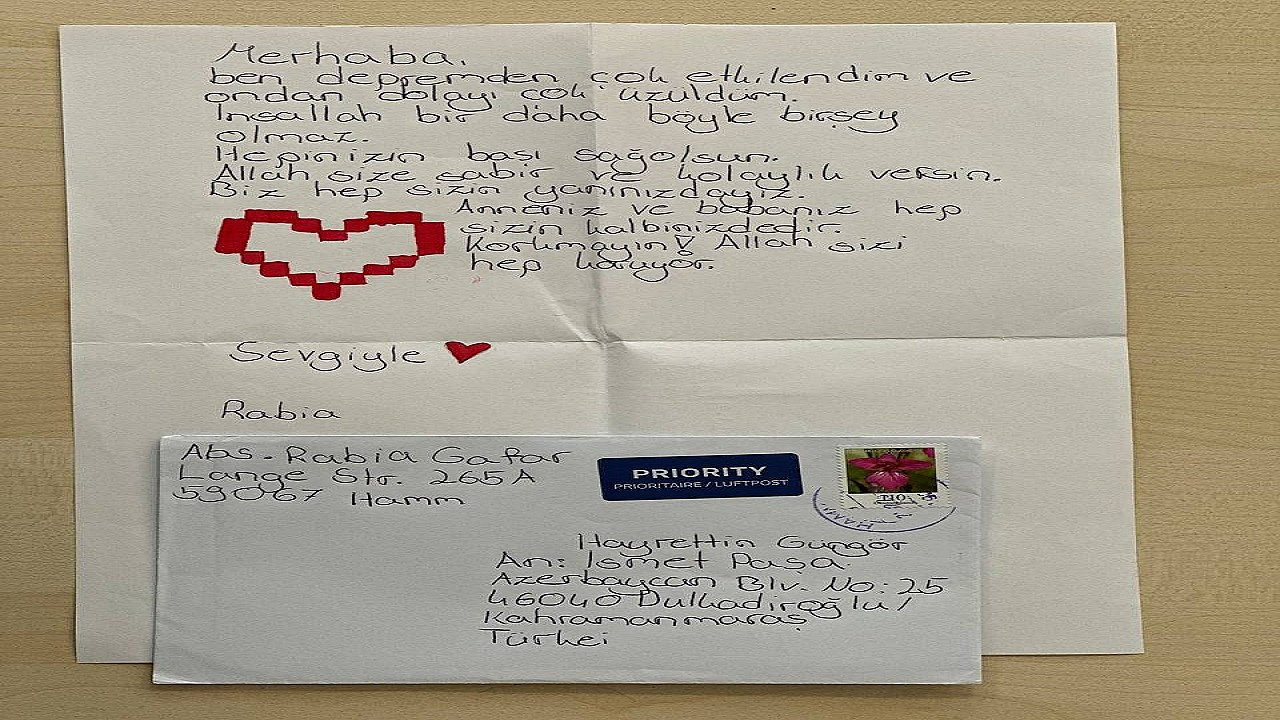 Merhaba,
ben depremden çok etkilendim ve
ondan dolayı çok üzüldüm.
İnşallah bir daha böyle birşey
olmaz.
Hepinizin başı sağolsun.
Allah size sabır ve kolaylık versin.
Biz hep sizin yanınızdayız.
Anneniz ve babanız hep
sizin kalbinizdedir.
Korkmayın! Allah sizi
hep koruyor.
Sevgiyle
Rabia
Abs. Rabia Gafar
Lange Str. 265A
59067 Hamm
PRIORITY
PRIORITAIRE / LUFTPOST
Hayrettin Güngör
An: İsmet Paşa
Azerbaycan Blv. No: 25
46040 Dulkadiroğlu/
Kahramanmaraş
Türkei